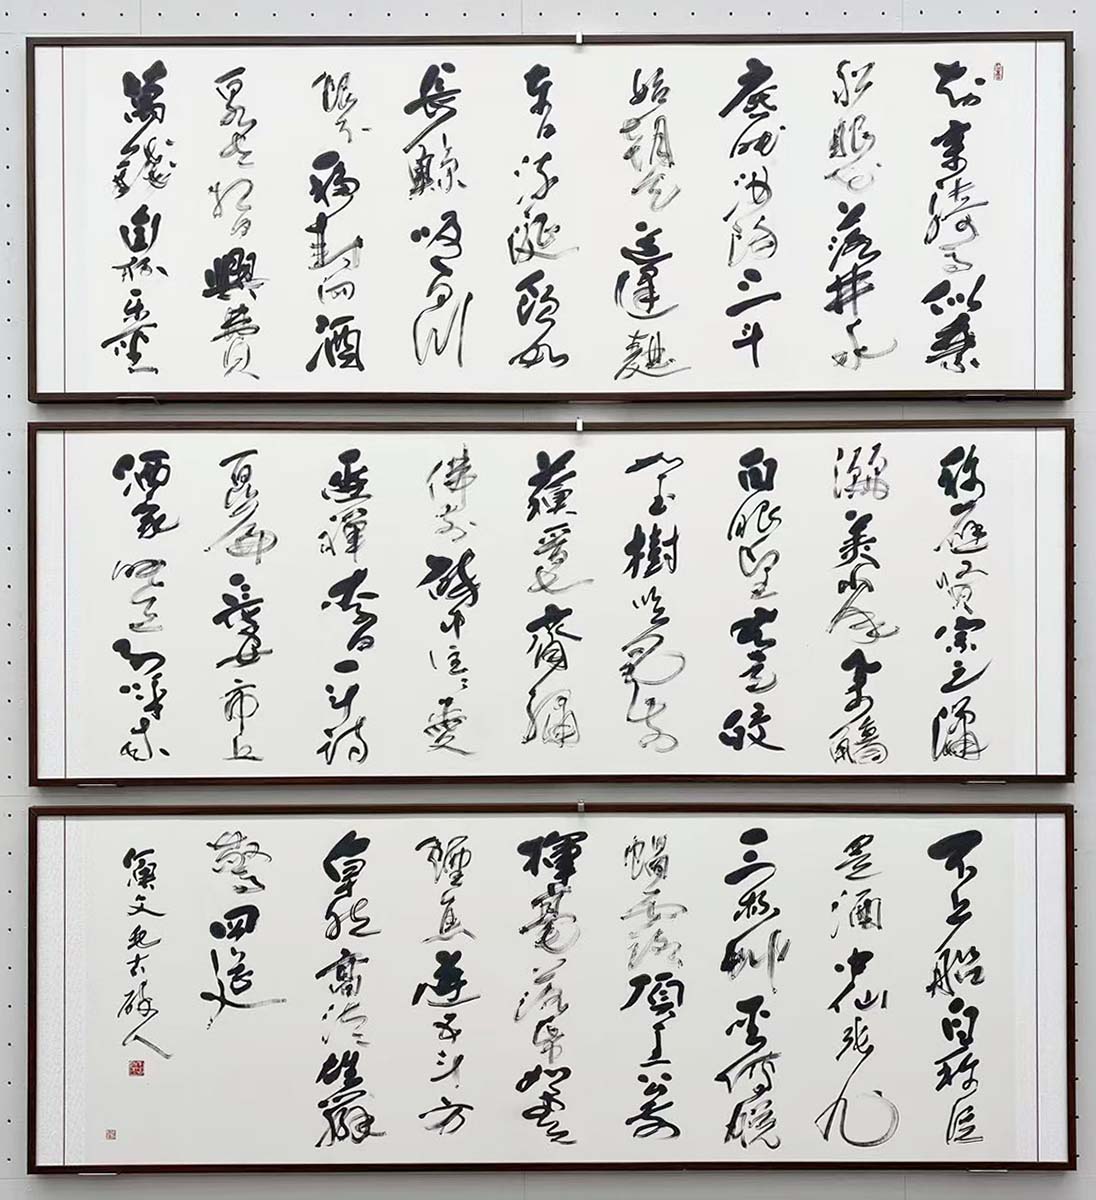 知章騎馬似乘
船眼花落井水
底眠汝陽三斗
始朝天道逢麴
車口流涎飲如
長鯨吸百川
恨不移封向酒
泉左相日興費
萬錢銜杯樂聖
稱避賢宗之瀟
灑美少年舉觴
白眼望青天皎
如玉樹臨風前
蘇晉長齋繡
佛前醉中往々愛
逃禪李白一斗詩
百篇長安市上
酒家眠天子呼來
不上船自稱臣
是酒中仙張旭
三杯草聖傳脫
帽露頂王公前
揮毫落紙如雲
煙焦遂五斗方
卓然高談雄辯
驚四筵